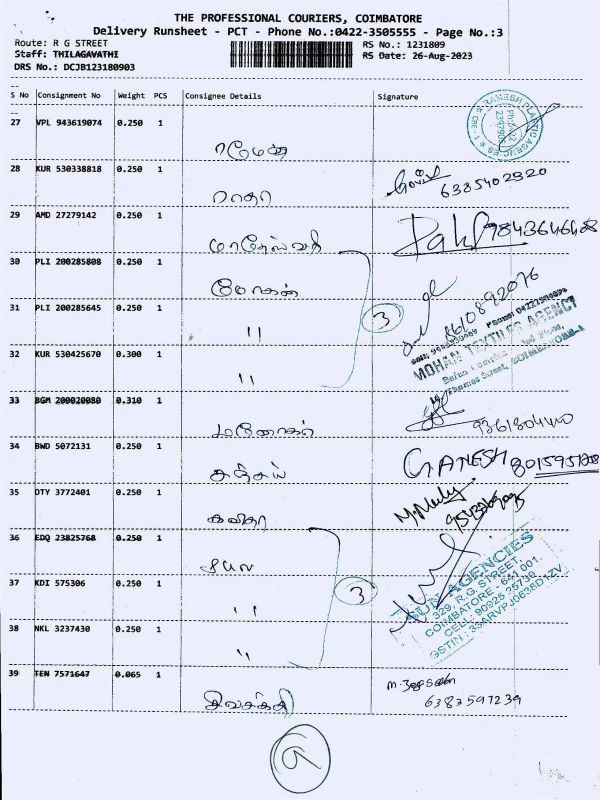 THE PROFESSIONAL COURIERS, COIMBATORE
Delivery Runsheet - PCT - Phone No.:0422-3505555 - Page No.:3
Route: R G STREET RS No.: 1231809
Staff: THILAGAVATHI RS Date: 26-Aug-2023
DRS No.: DCJB123180903
S No Consignment No Weight PCS Consignee Details Signature
27 VPL 943619074 0.250 1
RAMESH PLASTIC AGENCIES
ரமேஷ்
28 KUR 530338818 0.250 1
ராதா 6385402320
29 AMD 27279142 0.250 1
மாதேஸ்வரி 9843646428
30 PLI 200285808 0.250 1
மோகன் 8610892076
31 PLI 200285645 0.250 1
" 3
MOHAN TEXTILES AGENCY
32 KUR 530425670 0.300 1
"
33 BGM 200020080 0.310 1
மனோகர்
34 BWD 5072131 0.250 1
சஞ்சய் GANESH
35 DTY 3772401 0.250 1
கவிதா
36 EDQ 23825768 0.250 1
தீபம்
AGENCIES
329, R.G. STREET,
COIMBATORE - 641 001.
CELL: 90925 25739
37 KDI 575306 0.250 1
" 3
38 NKL 3237430 0.250 1
"
39 TEN 7571647 0.065 1
சிவசக்தி 6383597239
9